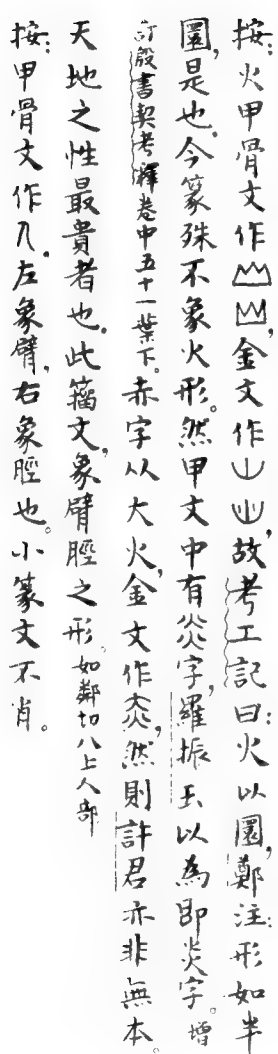 按：火甲骨文作，金文作，故考工記曰：火以圜，鄭注：形如半
圜，是也。今篆殊不象火形。然甲文中有炎字，羅振玉以為即炎字。增
訂殷書契考釋卷中五十一葉下。赤字从大火，金文作，然則許君亦非無本。
天地之性最貴者也。此籀文，象臂脛之形。如鄰切八上人部
按：甲骨文作，左象臂，右象脛也。小篆文不肖。